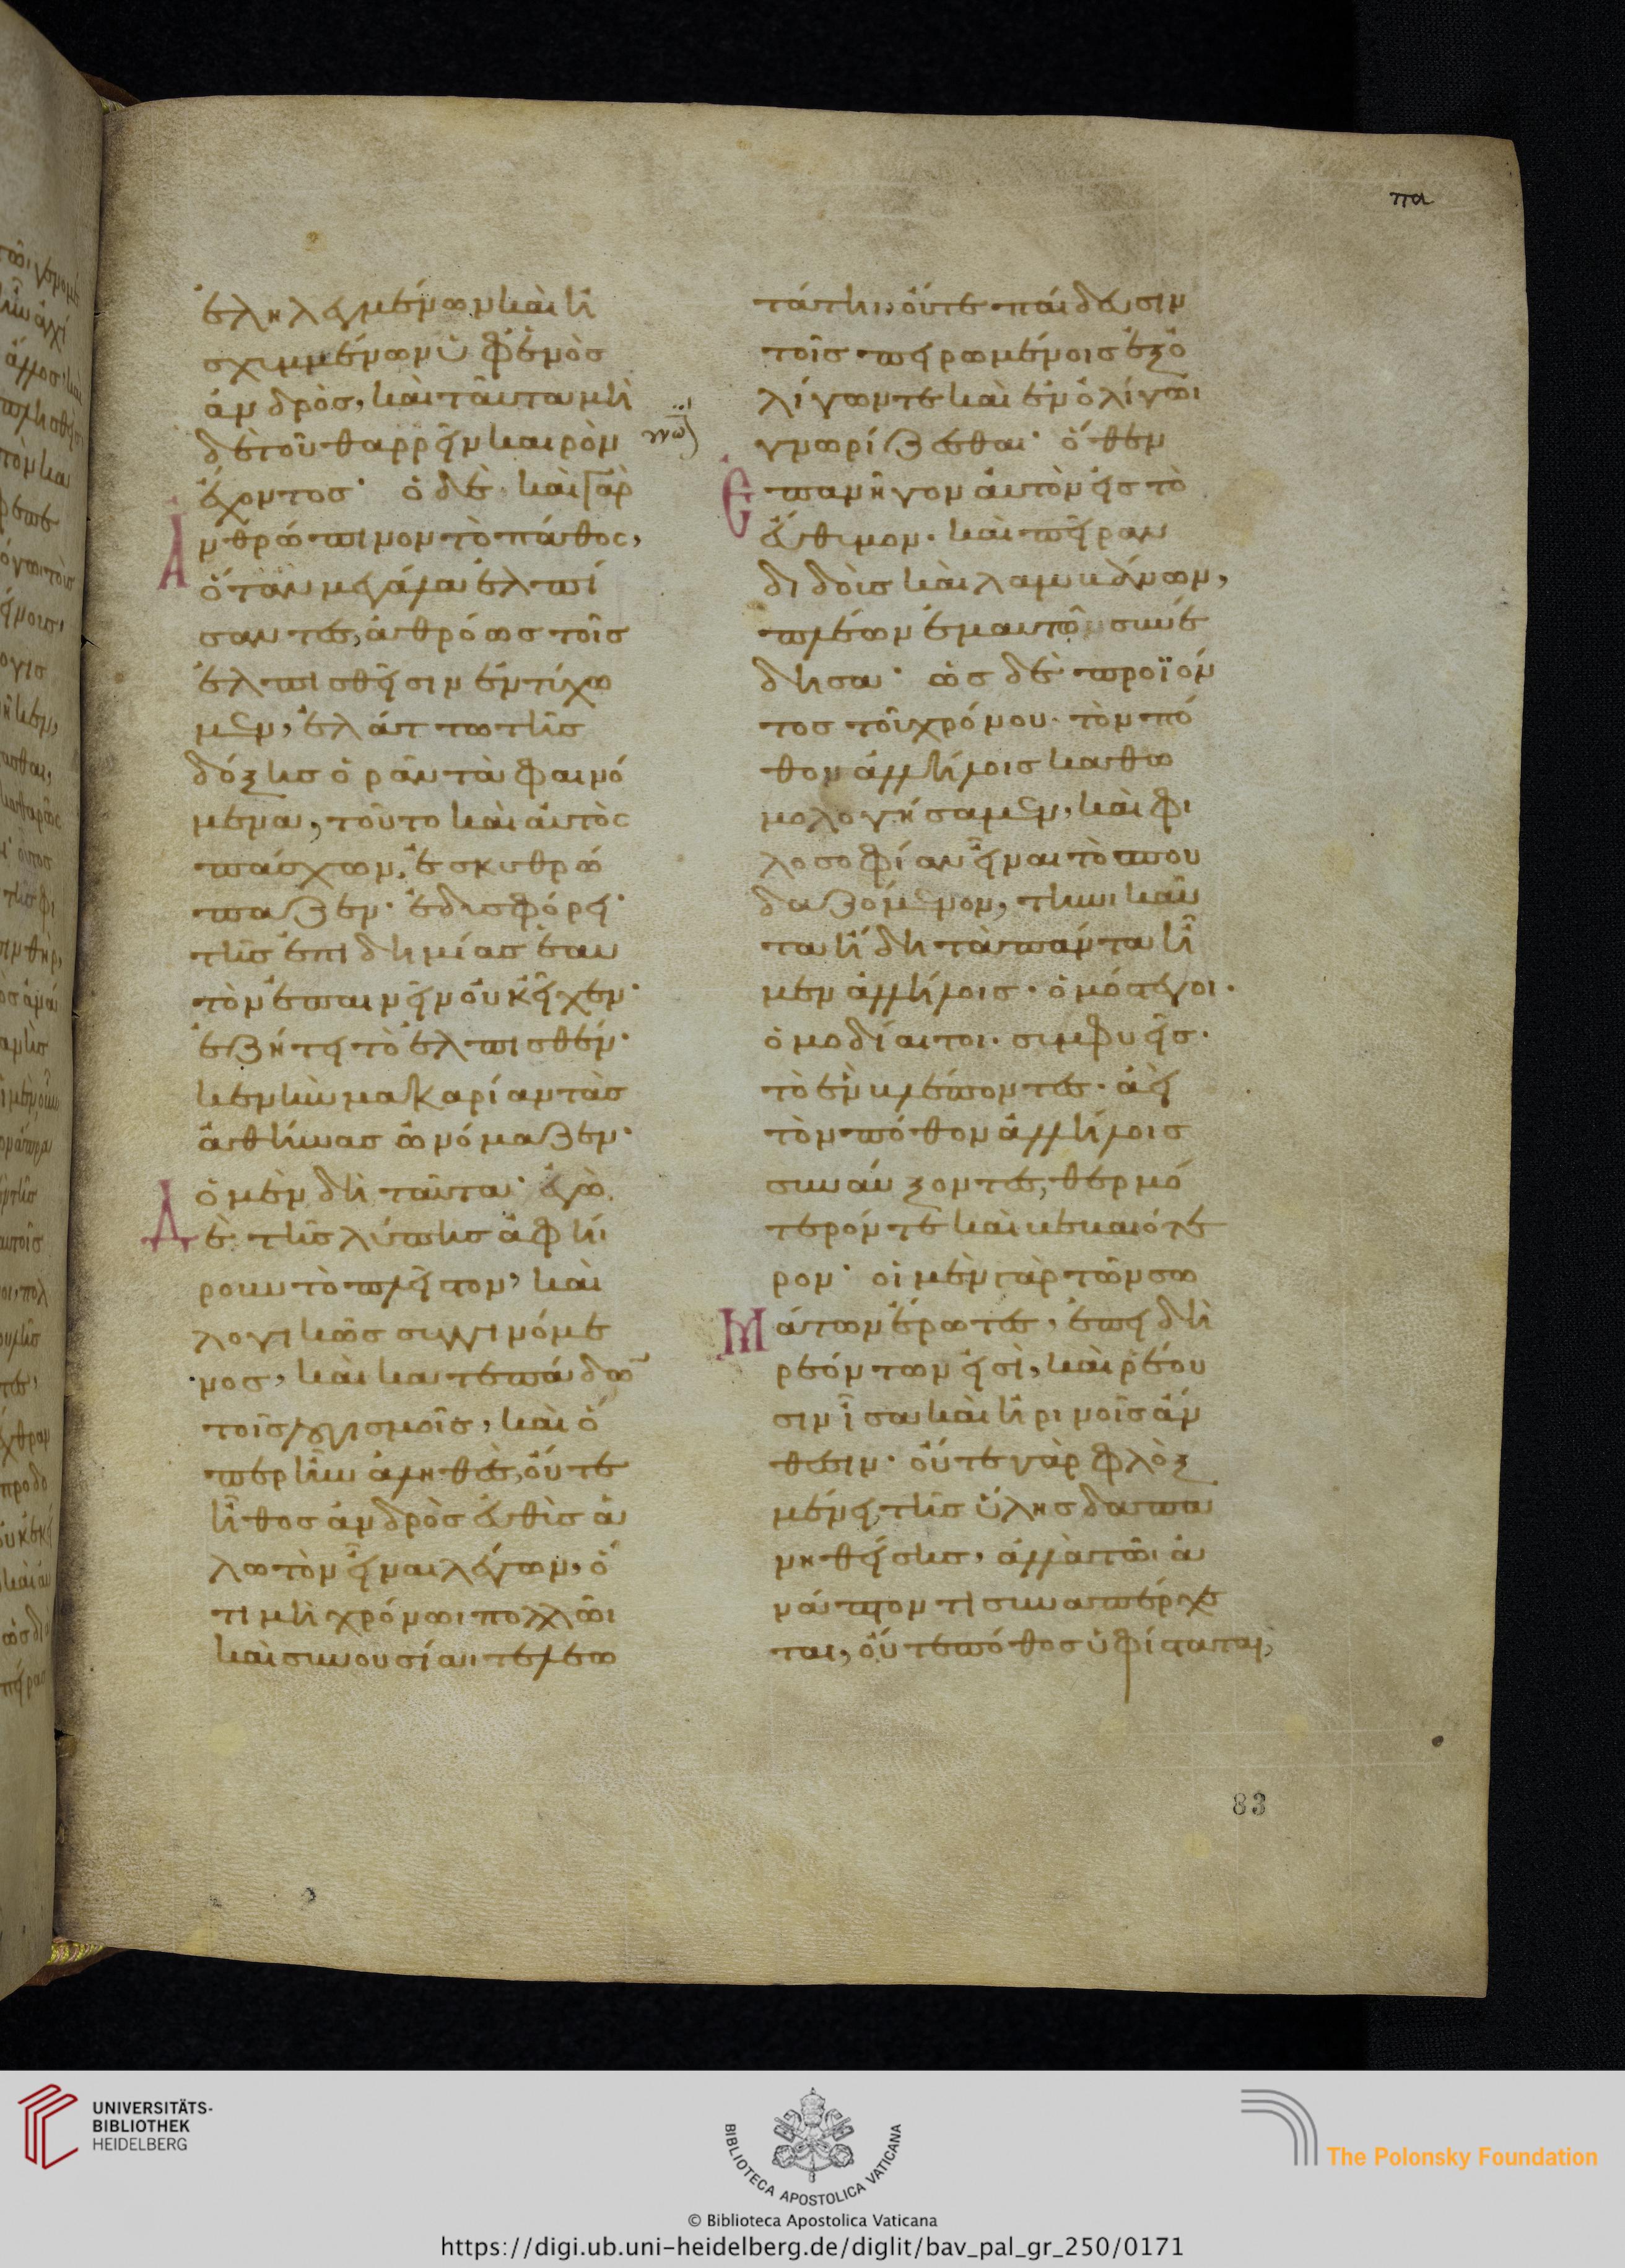 πα
ἐληλεγμένων καὶ ἠ
σχυμμένων ὑφ' ἑνὸς
ἀνδρὸς, καὶ ταῦτα μη
δὲ τοῦ θαρρεῖν καιρὸν
ἔχοντος· ὁ δὲ καὶ γὰρ
ἀνθρώπινον τὸ πάθος,
ὅταν μεγάλα ἐλπί
σαντες, ἀθρόως τοῖς
ἐλπισθεῖσιν ἐντύχω
μεν, ἐλάττω τῆς
δόξης ὁρᾶν τὰ φαινό
μενα, τοῦτο καὶ αὐτὸς
πάσχων, ἐσκυθρώ
παζεν· ἐδυσφόρει·
τῆς ἐπιδημίας ἑαυ
τὸν ἐπαινεῖν οὐκ εἶχεν·
ἐζήτει τὸ ἐλπισθέν·
κενὴν μακαρίαν τὰς
ἀθήνας ὠνόμαζεν·
ὁ μὲν δὴ ταῦτα· ἐγὼ
δὲ τῆς λύπης ἀφή
ρουν τὸ πλεῖστον, καὶ
λογικῶς συγγινόμε
νος, καὶ κατεπάδων
τοῖς λογισμοῖς, καὶ ὅ
περ ἦν ἀληθὲς, οὔτε
ἦθος ἀνδρὸς εὐθὺς ἁ
λωτὸν εἶναι λέγων, ὅ
τι μὴ χρόνωι πολλῶι
καὶ συνουσίαι τελεω
τάτηι, οὔτε παίδευσιν
τοῖς πειρωμένοις ἐξ ὀ
λίγων τε καὶ ἐν ὀλίγωι
γνωρίζεσθαι· ὅθεν
ἐπανῆγον αὐτὸν εἰς τὸ
εὔθυμον· καὶ πεῖραν
διδοὺς καὶ λαμβάνων,
πλέων ἐμαυτῶ συνέ
δησα· ὡς δὲ προϊόν
τος τοῦ χρόνου· τὸν πό
θον ἀλλήλοις καθω
μολογήσαμεν, καὶ φι
λοσοφίαν εἶναι τὸ σπου
δαζόμενον, τηνικαῦ
τα ἤδη τὰ πάντα ἦ
μεν ἀλλήλοις· ὁμόστεγοι·
ὁμοδίαιτοι· συμφυεῖς·
τὸ ἓν βλέποντες· ἀεὶ
τὸν πόθον ἀλλήλοις
συναύξοντες, θερμό
τερόν τε καὶ βεβαιότε
ρον· οἱ μὲν γὰρ τῶν σω
μάτων ἔρωτες, ἐπειδὴ
ῥεόντων εἰσὶ, καὶ ῥέου
σιν ἶσα καὶ ἠρινοῖς ἄν
θεσιν· οὔτε γὰρ φλὸξ
μένει, τῆς ὕλης δαπα
νηθείσης, ἀλλὰ τῶι ἀ
νάπτοντι συναπέρχε
ται, οὔτε πόθος ὑφίσταται,
83
UNIVERSITÄTS-
BIBLIOTHEK
HEIDELBERG
BIBLIOTECA APOSTOLICA VATICANA
The Polonsky Foundation
© Biblioteca Apostolica Vaticana
https://digi.ub.uni-heidelberg.de/diglit/bav_pal_gr_250/0171